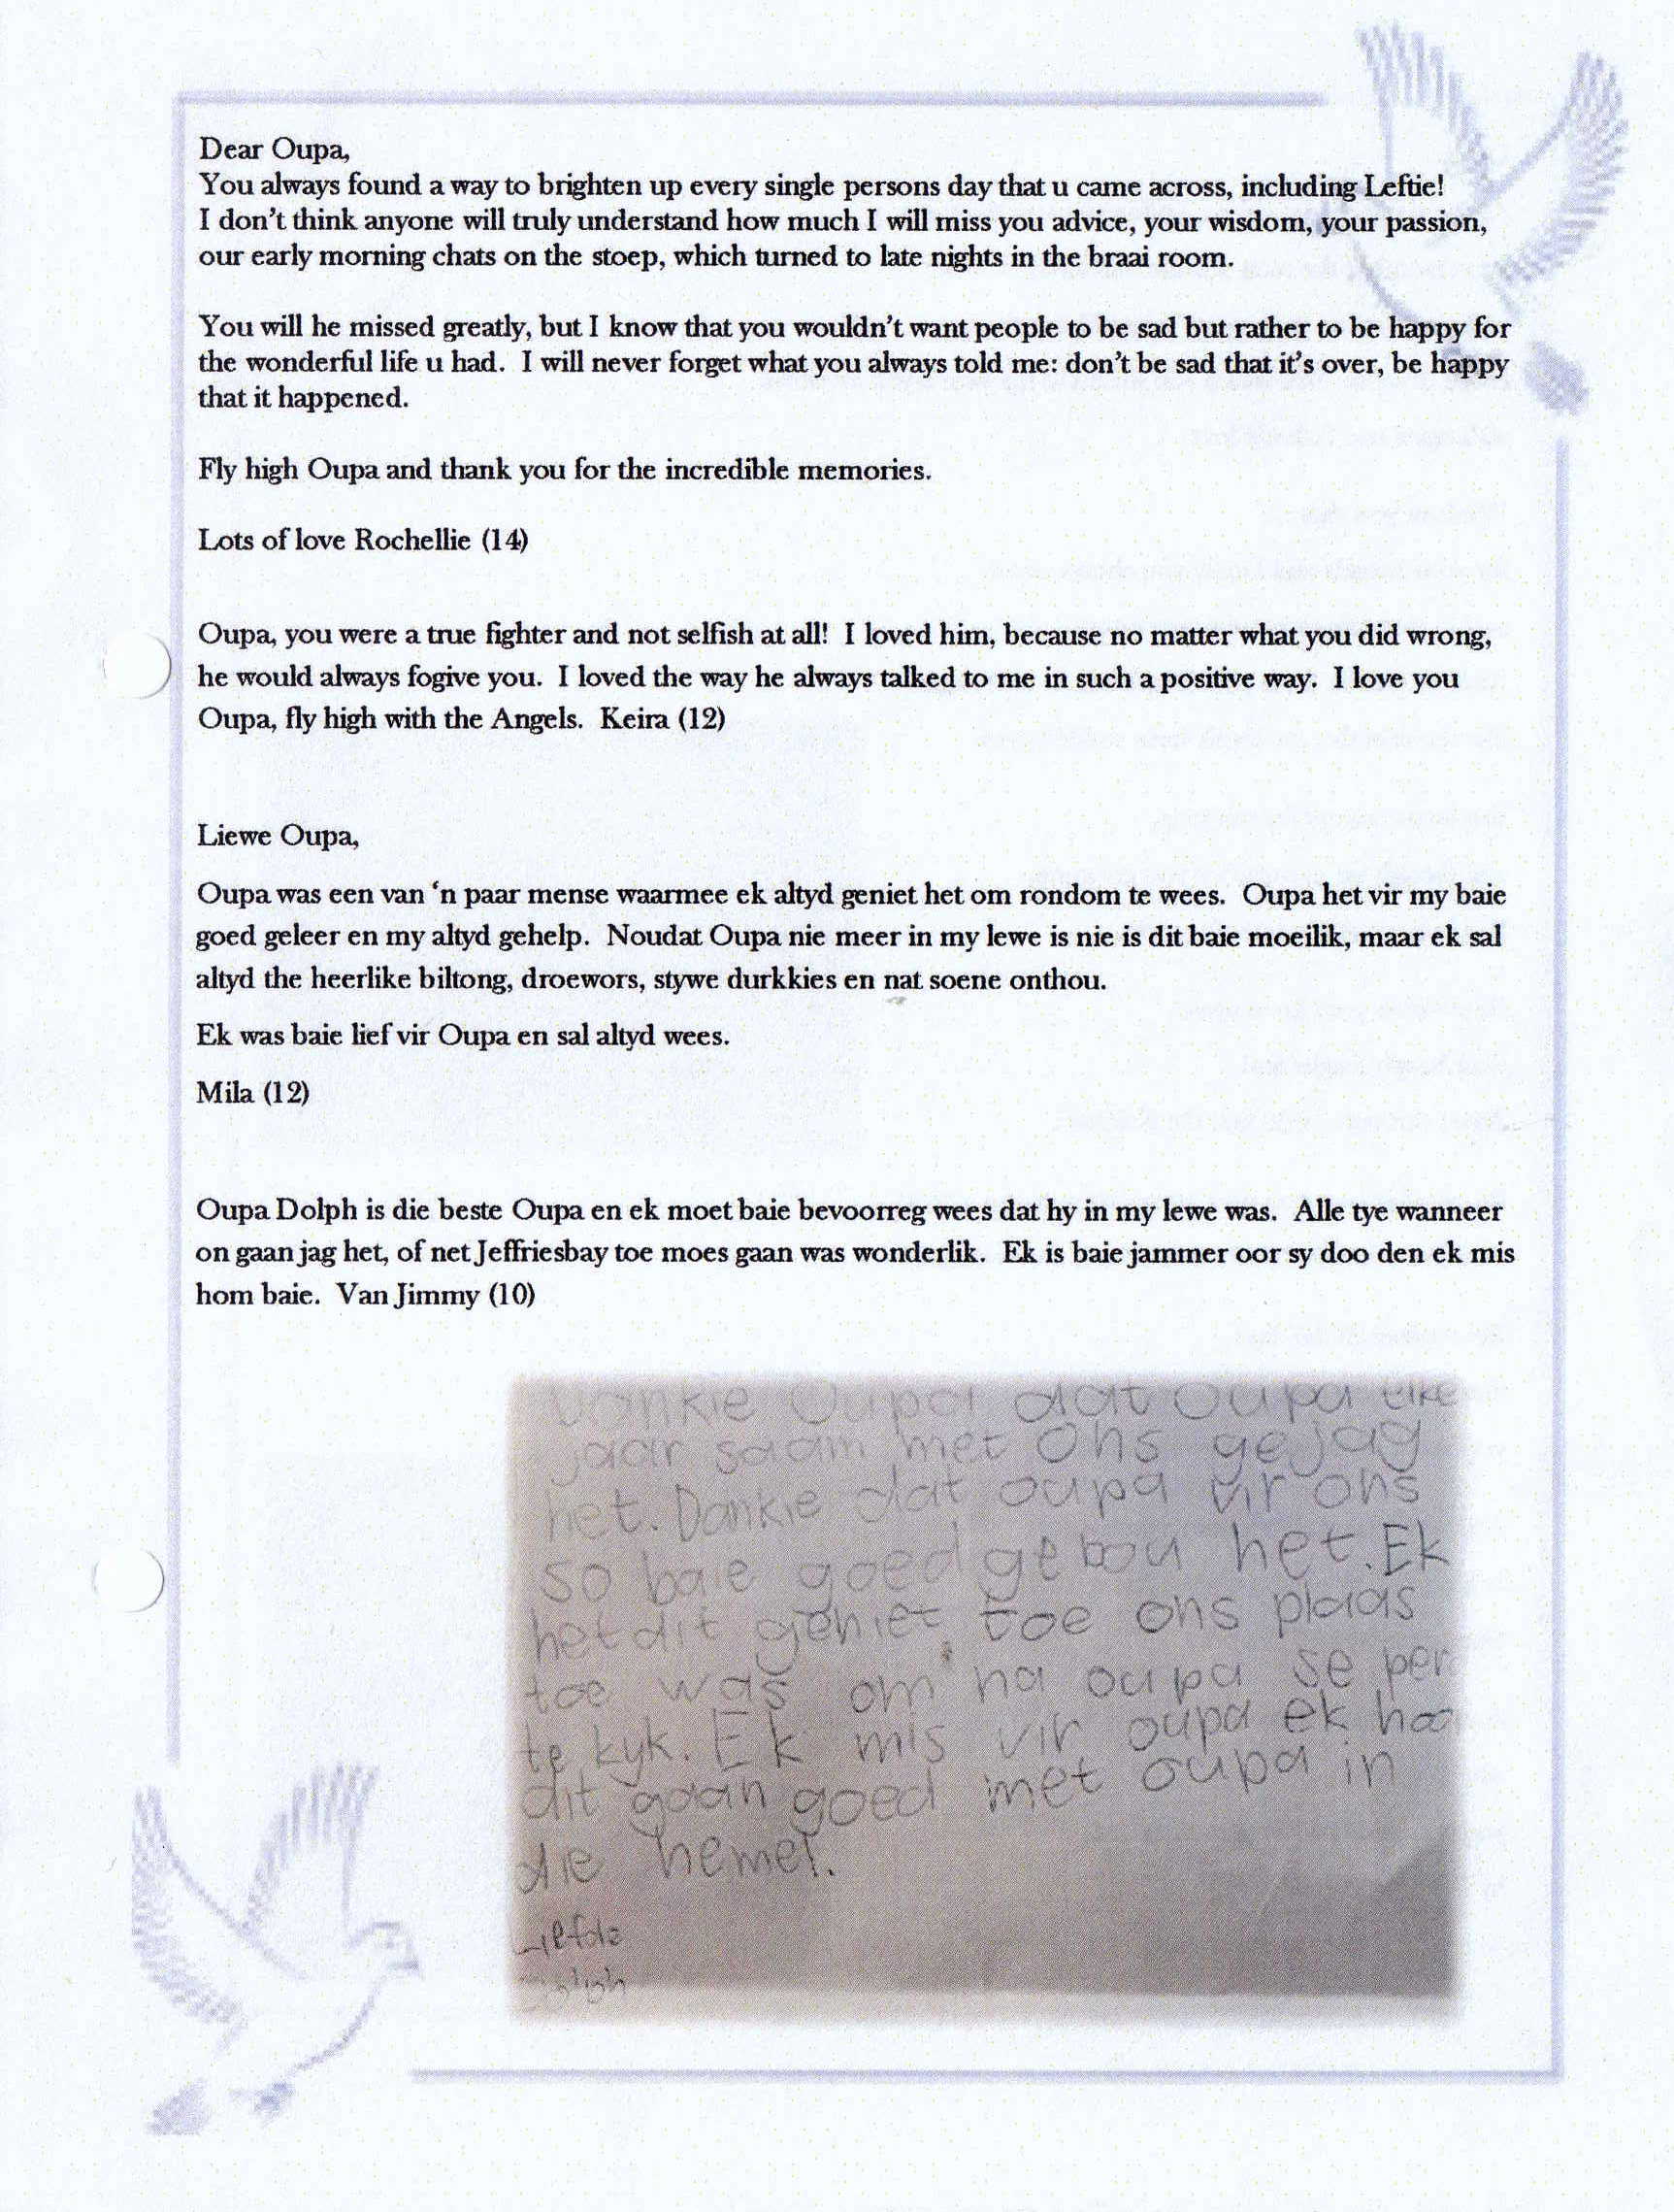 Dear Oupa,
You always found a way to brighten up every single persons day that u came across, including Leftie!
I don't think anyone will truly understand how much I will miss you advice, your wisdom, your passion,
our early morning chats on the stoep, which turned to late nights in the braai room.
You will he missed greatly, but I know that you wouldn't want people to be sad but rather to be happy for
the wonderful life u had. I will never forget what you always told me: don't be sad that it's over, be happy
that it happened.
Fly high Oupa and thank you for the incredible memories.
Lots of love Rochellie (14)
Oupa, you were a true fighter and not selfish at all! I loved him, because no matter what you did wrong,
he would always fogive you. I loved the way he always talked to me in such a positive way. I love you
Oupa, fly high with the Angels. Keira (12)
Liewe Oupa,
Oupa was een van 'n paar mense waarmee ek altyd geniet het om rondom te wees. Oupa het vir my baie
goed geleer en my altyd gehelp. Noudat Oupa nie meer in my lewe is nie is dit baie moeilik, maar ek sal
altyd the heerlike biltong, droewors, stywe durkkies en nat soene onthou.
Ek was baie lief vir Oupa en sal altyd wees.
Mila (12)
Oupa Dolph is die beste Oupa en ek moet baie bevoorreg wees dat hy in my lewe was. Alle tye wanneer
on gaan jag het, of net Jeffriesbay toe moes gaan was wonderlik. Ek is baie jammer oor sy doo den ek mis
hom baie. Van Jimmy (10)
Dankie Oupa dat Oupa elke
jaar saam met Ons gejag
het. Dankie dat oupa vir ons
so baie goed gebou het. Ek
het dit geniet toe ons plaas
toe was om na oupa se per
te kyk. Ek mis vir oupa ek hoo
dit gaan goed met oupa in
die hemel.
Liefde